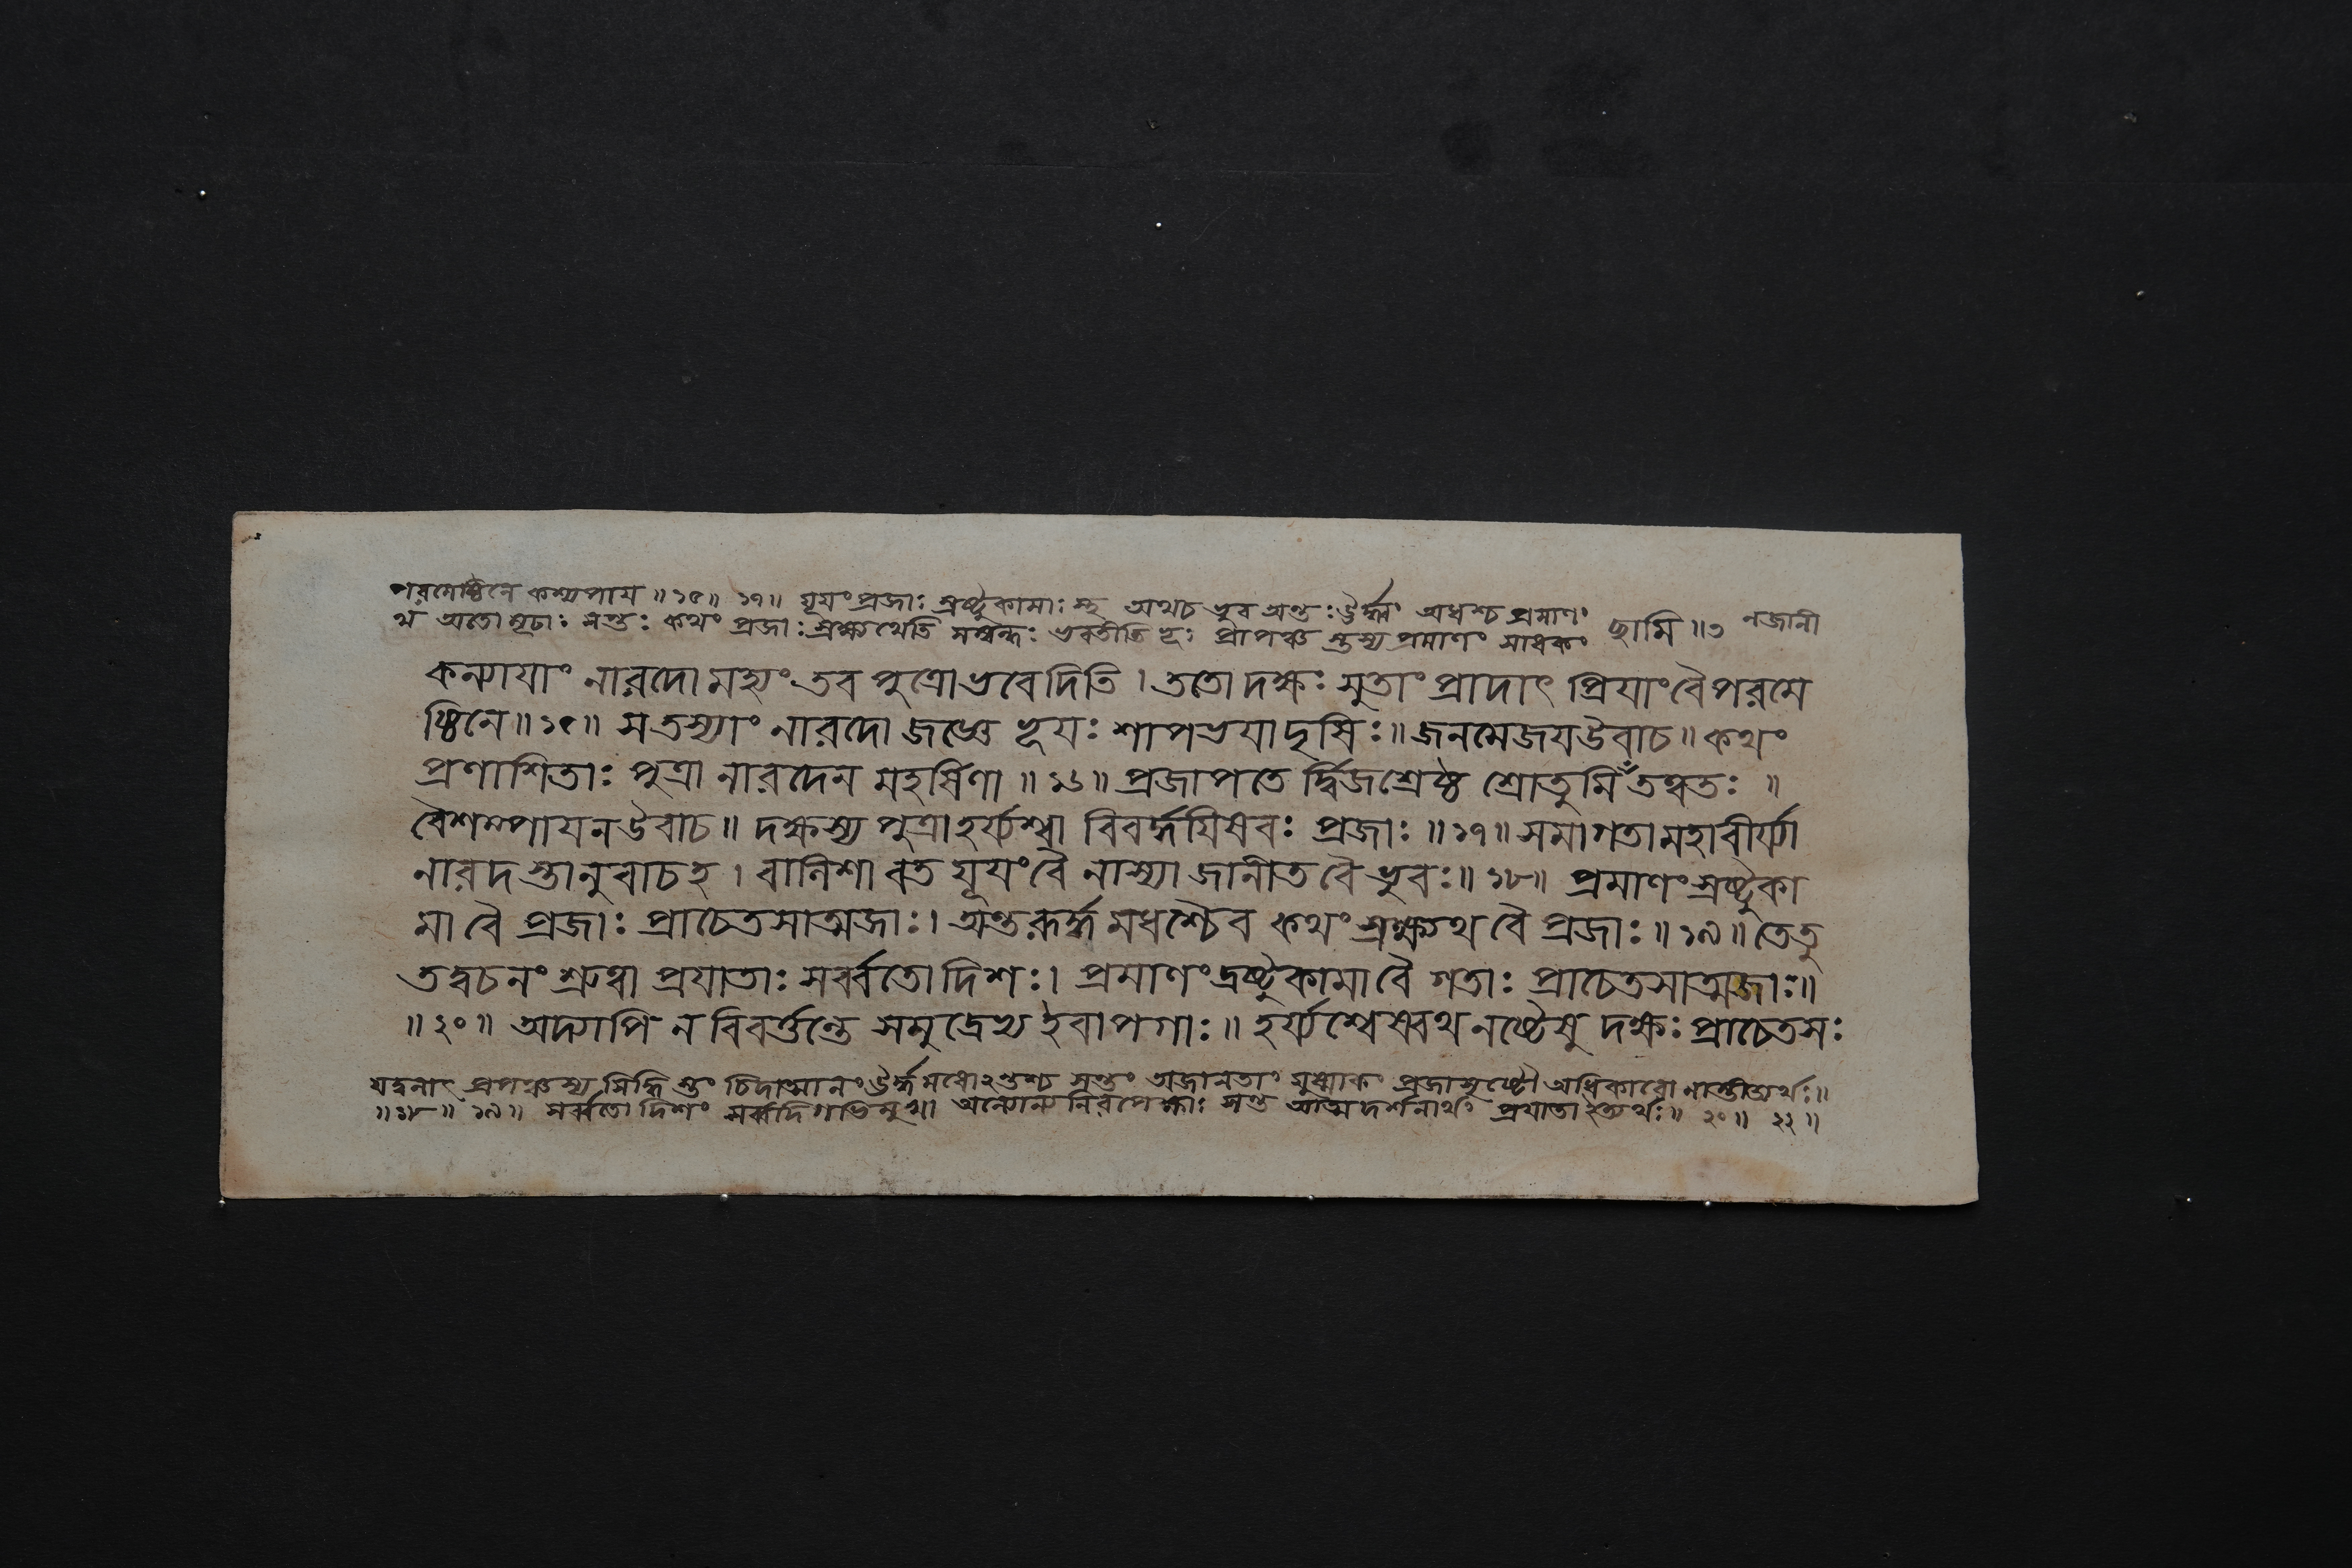 পরমেষ্ঠিনে কশ্যপায ॥ ১৫॥ ১৭॥ যূযং প্রজাঃ স্রষ্টুকামাঃ স্থ অথচ ভুব অন্তঃ ঊর্দ্ধং অধশ্চ প্রমাণং নজানী
থ অতো মূঢাঃ সন্তঃ কথং প্রজাঃ স্রক্ষ্যথেতি সম্বন্ধঃ ভবতীতি ভূঃ প্রাপঞ্চ স্তস্য প্রমাণং সাধকং ছামি ॥৩
কন্যাযাং নারদো মহ্যং তব পুত্রো ভবেদিতি । ততো দক্ষঃ সুতাং প্রাদাৎ প্রিযাং বৈ পরমে
ষ্ঠিনে ॥ ১৫॥ স তস্যাং নারদো জজ্ঞে ভূযঃ শাপভযাদৃষিঃ ॥ জনমেজযউবাচ ॥ কথং
প্রণাশিতাঃ পুত্রা নারদেন মহর্ষিণা ॥ ১৬॥ প্রজাপতে র্দ্বিজশ্রেষ্ঠ শ্রোতুমি তত্ত্বতঃ ॥
বৈশম্পাযনউবাচ ॥ দক্ষস্য পুত্রা হর্য্যশ্বা বিবর্দ্ধযিষবঃ প্রজাঃ ॥ ১৭॥ সমাগতা মহাবীর্য্যা
নারদ স্তানুবাচহ । বালিশা বত যূযং বৈ নাস্যা জানীত বৈ ভুবঃ ॥ ১৮॥ প্রমাণং স্রষ্টুকা
মা বৈ প্রজাঃ প্রাচেতসাত্মজাঃ । অন্তরূর্দ্ধ মধশ্চৈব কথং স্রক্ষ্যথ বৈ প্রজাঃ ॥ ১৯॥ তেতু
তদ্বচনং শ্রুত্বা প্রযাতাঃ সর্ব্বতো দিশঃ । প্রমাণং দ্রষ্টুকামা বৈ গতাঃ প্রাচেতসাত্মজাঃ ॥
॥ ২০ ॥ অদ্যাপি ন নিবর্ত্তন্তে সমুদ্রেভ্য ইবাপগাঃ ॥ হর্য্যশ্বেষ্বথ নষ্টেষু দক্ষঃ প্রাচেতসঃ
যদ্বলাৎ প্রপঞ্চস্য সিদ্ধি স্তং চিদাত্মানং ঊর্দ্ধ মধোঽন্তশ্চ সন্তং অজানতাং যুষ্মাকং প্রজাসৃষ্টৌ অধিকারো নাস্তীত্যর্থঃ ॥
॥ ১৮ ॥ ১৯॥ সর্ব্বতো দিশং সর্ব্বদিগভিমুখা অন্যোন্য নিরপেক্ষাঃ সন্ত আত্মদর্শনার্থং প্রযাতা ইত্যর্থঃ ॥ ২০ ॥ ২২ ॥